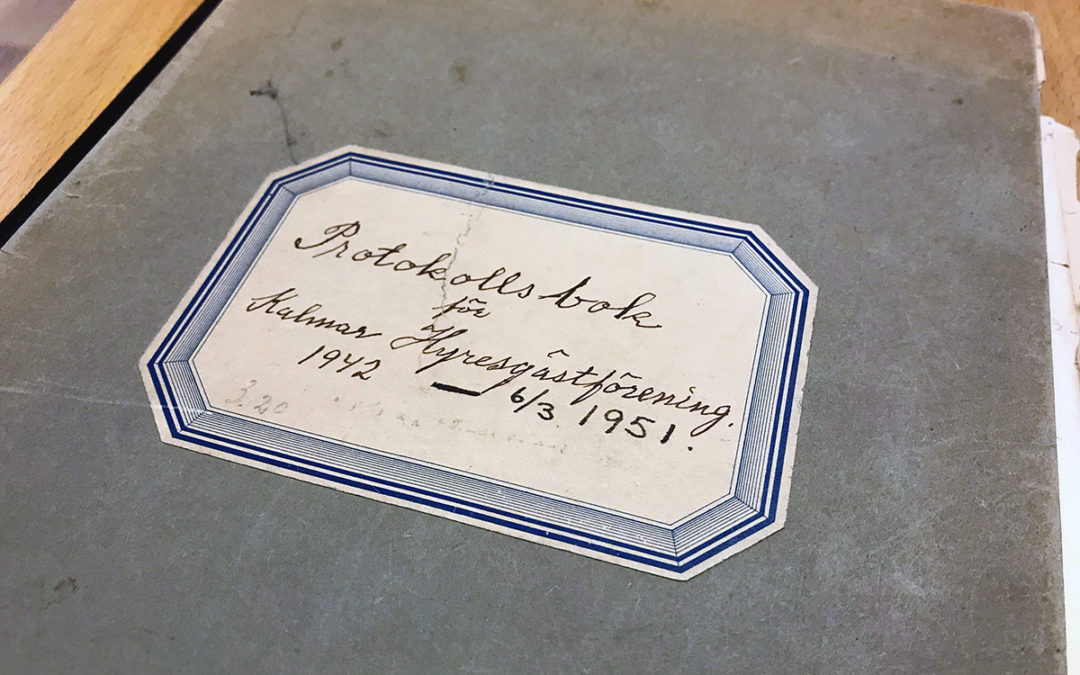 Protokolls bok
för
Kalmar Hyresgästförening.
1942 — 6/3 1951.
3.20